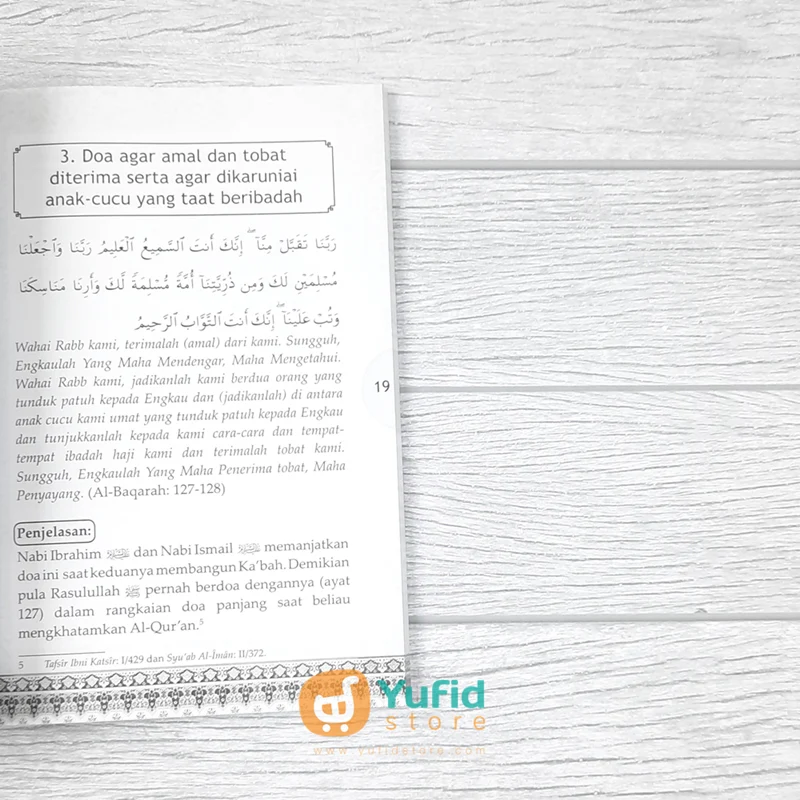 3. Doa agar amal dan tobat
diterima serta agar dikaruniai
anak-cucu yang taat beribadah
رَبَّنَا تَقَبَّلْ مِنَّآ ۖ إِنَّكَ أَنتَ ٱلسَّمِيعُ ٱلْعَلِيمُ رَبَّنَا وَٱجْعَلْنَا
مُسْلِمَيْنِ لَكَ وَمِن ذُرِّيَّتِنَآ أُمَّةً مُّسْلِمَةً لَّكَ وَأَرِنَا مَنَاسِكَنَا
وَتُبْ عَلَيْنَآ ۖ إِنَّكَ أَنتَ ٱلتَّوَّابُ ٱلرَّحِيمُ
Wahai Rabb kami, terimalah (amal) dari kami. Sungguh,
Engkaulah Yang Maha Mendengar, Maha Mengetahui.
Wahai Rabb kami, jadikanlah kami berdua orang yang
tunduk patuh kepada Engkau dan (jadikanlah) di antara
anak cucu kami umat yang tunduk patuh kepada Engkau
dan tunjukkanlah kepada kami cara-cara dan tempat-
tempat ibadah haji kami dan terimalah tobat kami.
Sungguh, Engkaulah Yang Maha Penerima tobat, Maha
Penyayang. (Al-Baqarah: 127-128)
19
Penjelasan:
Nabi Ibrahim dan Nabi Ismail memanjatkan
doa ini saat keduanya membangun Ka'bah. Demikian
pula Rasulullah ﷺ pernah berdoa dengannya (ayat
127) dalam rangkaian doa panjang saat beliau
mengkhatamkan Al-Qur'an.⁵
5 Tafsîr Ibni Katsîr: I/429 dan Syu'ab Al-Îmân: II/372.
Yufid
store
www.yufidstore.com